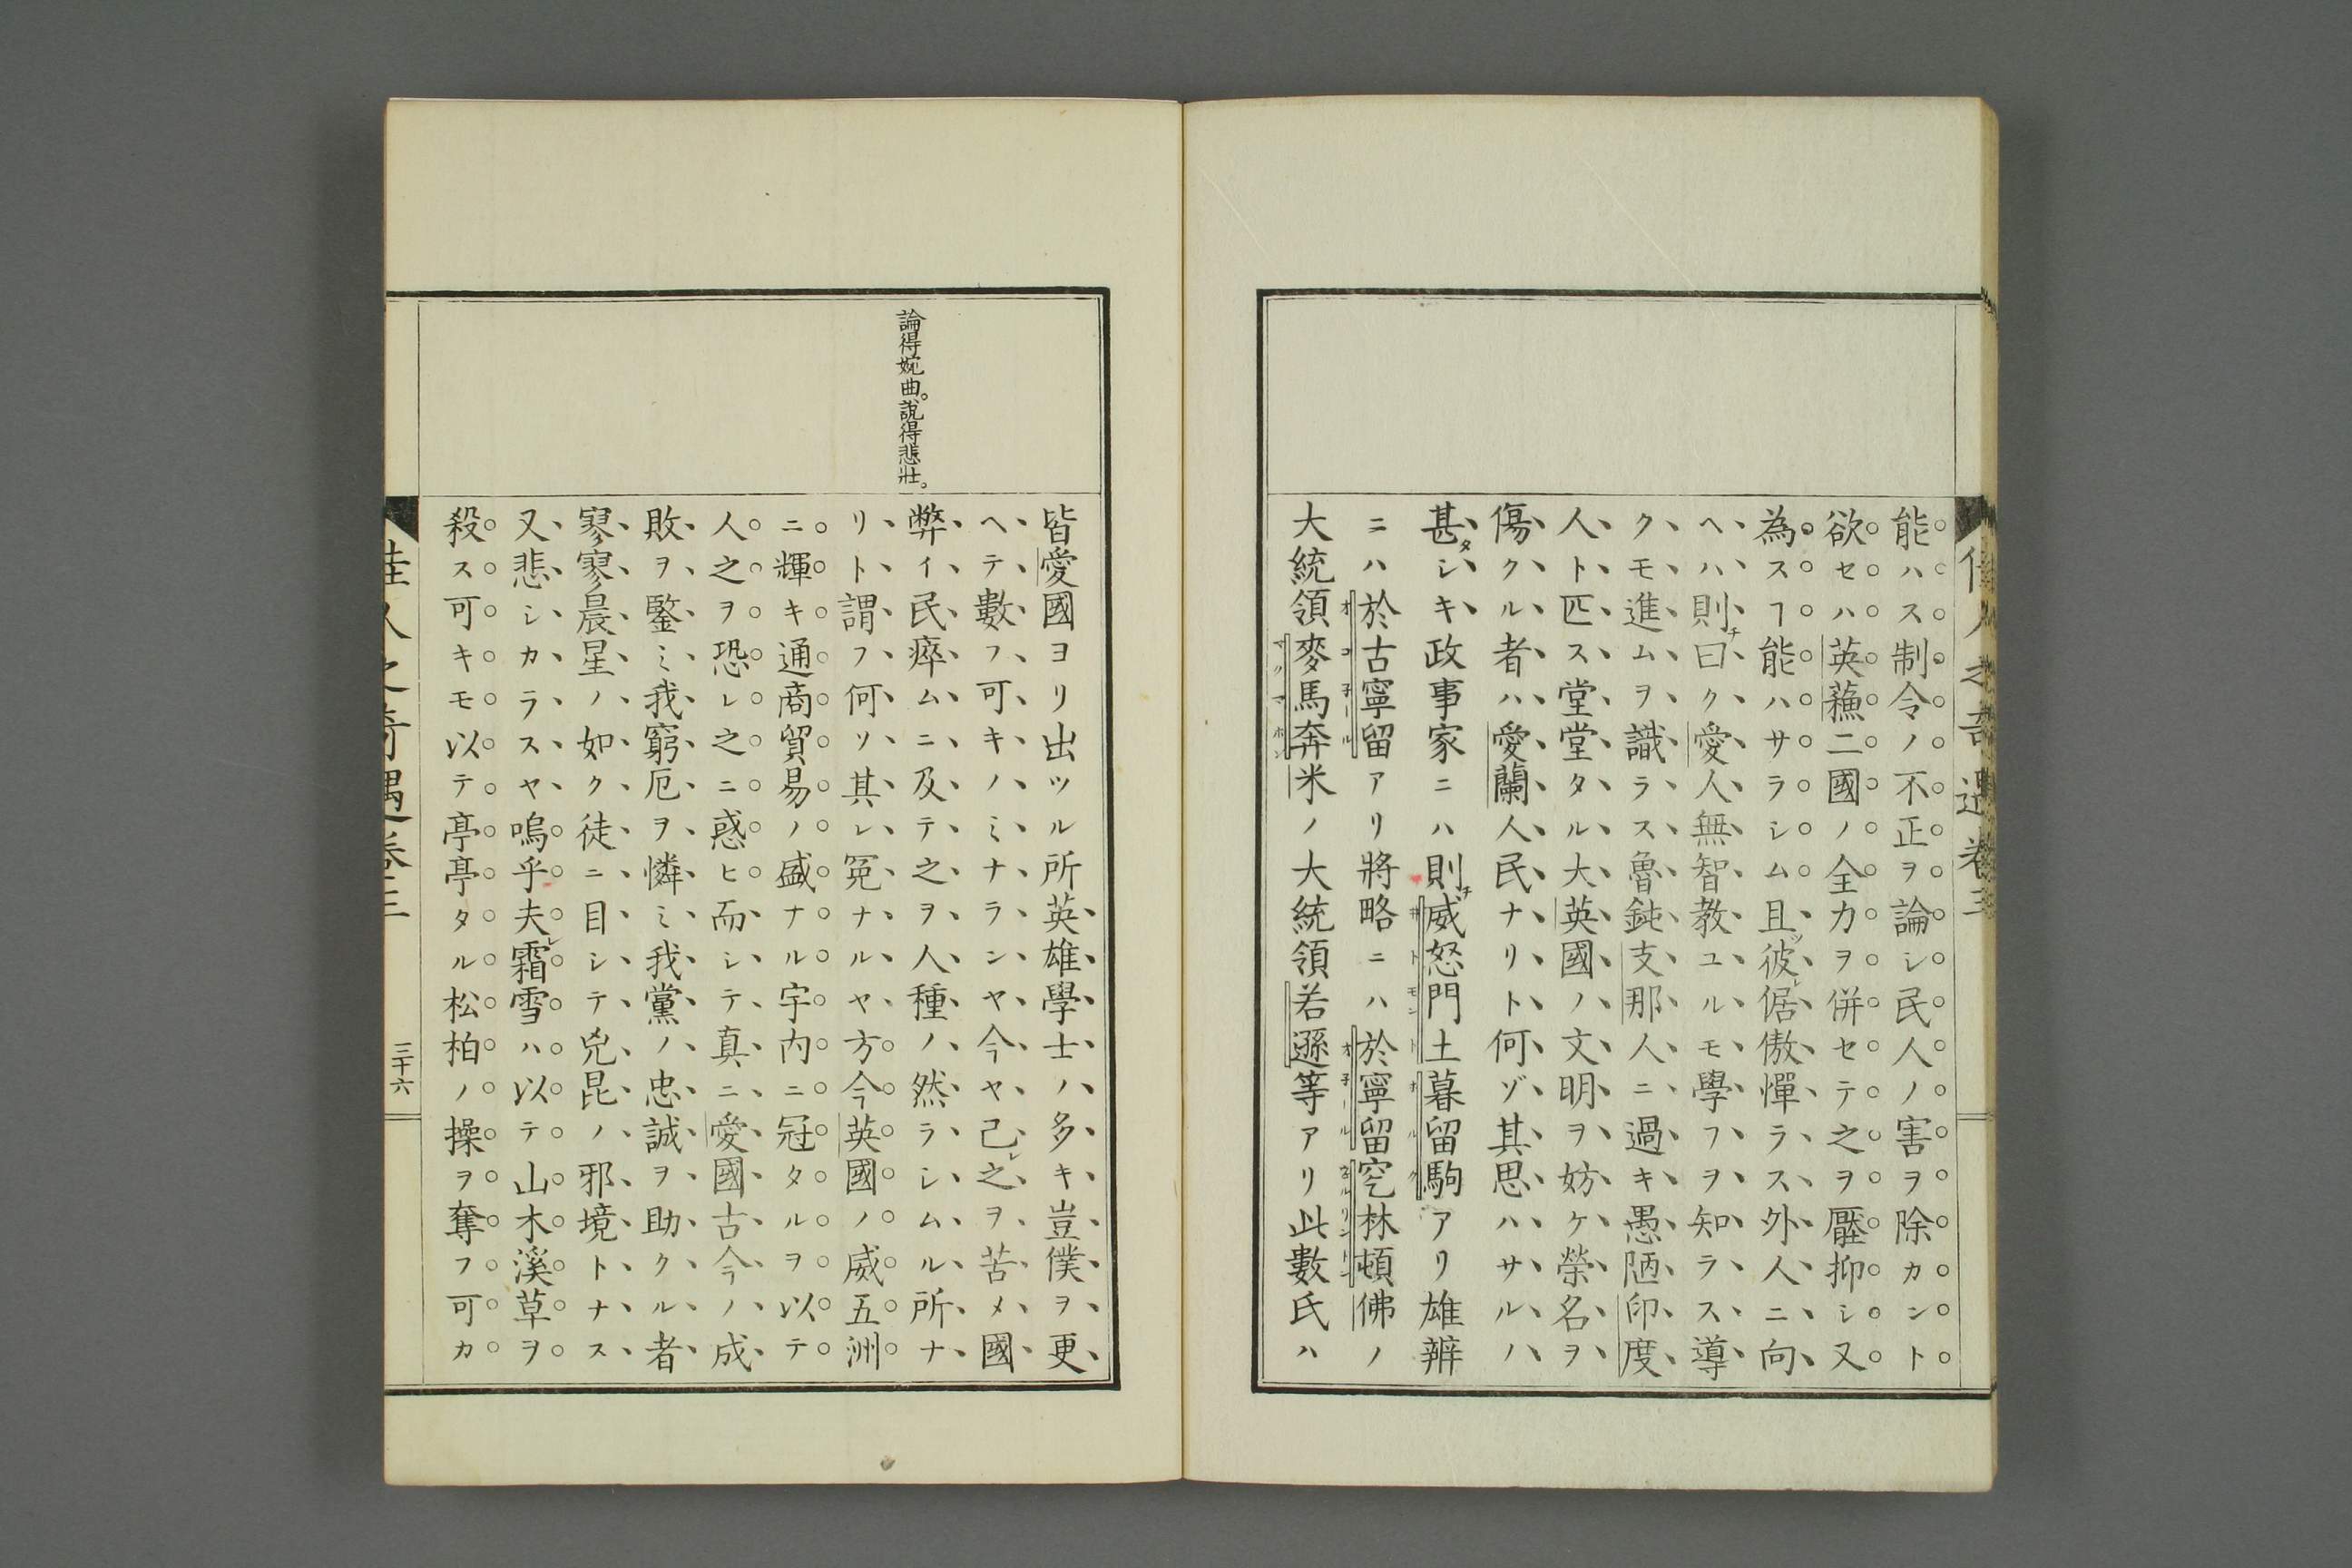 能ハス制令ノ不正ヲ論シ民人ノ害ヲ除カント
欲セハ英蘓二國ノ全力ヲ併セテ之ヲ壓抑シ又
為スヿ能ハサラシム且ツ彼レ倨傲憚ラス外人ニ向
ヘハ則チ曰ク愛人無智教ユルモ學フヲ知ラス導
クモ進ムヲ識ラス魯鈍支那人ニ過キ愚陋印度
人ト匹ス堂堂タル大英國ノ文明ヲ妨ケ榮名ヲ
傷クル者ハ愛蘭人民ナリト何ゾ其思ハサルノ
甚タシキ政事家ニハ則チ威怒門土暮留駒アリ雄辨
ニハ於古寧留アリ將略ニハ於寧留空林頓佛ノ
大統領麥馬奔米ノ大統領若遜等アリ此數氏ハ
佳人之奇遇卷三
論得婉曲。說得悲壯。
皆愛國ヨリ出ツル所英雄學士ハ多キ豈僕ヲ更
ヘテ數フ可キノミナランヤ今ヤ己レ之ヲ苦メ國
弊イ民瘁ムニ及テ之ヲ人種ノ然ラシムル所ナ
リト謂フ何ソ其レ冤ナルヤ方今英國ノ威五洲
ニ輝キ通商貿易ノ盛ナル宇内ニ冠タルヲ以テ
人之ヲ恐レ之ニ惑ヒ而シテ真ニ愛國古今ノ成
敗ヲ鑒ミ我窮厄ヲ憐ミ我黨ノ忠誠ヲ助クル者
寥寥晨星ノ如ク徒ニ目シテ兇昆ノ邪境トナス
又悲シカラスヤ嗚乎夫レ霜雪ハ以テ山木溪草ヲ
殺ス可キモ以テ亭亭タル松柏ノ操ヲ奪フ可カ
佳人之奇遇卷三
三十六